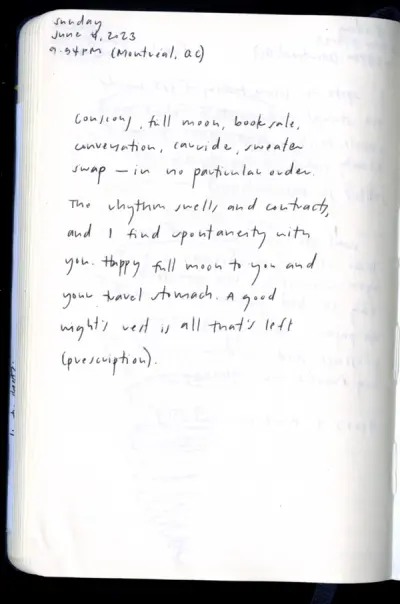 Sunday
June 4, 2023
9:54PM (Montreal, QC)
full moon, book sale,
conversation, car ride, sweater
swap — in no particular order.
The rhythm swells and contracts,
and I find spontaneity with
you. Happy full moon to you and
your travel stomach. A good
night's rest is all that's left
(prescription).